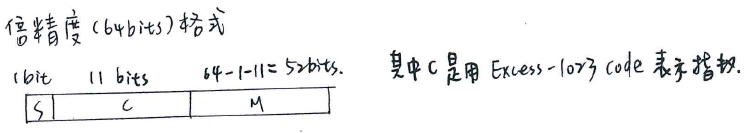 倍精度(64bits)格式
1bit 11 bits 64-1-11=52bits. 其中C是用 Excess-1023 code 表示指数.
S C M